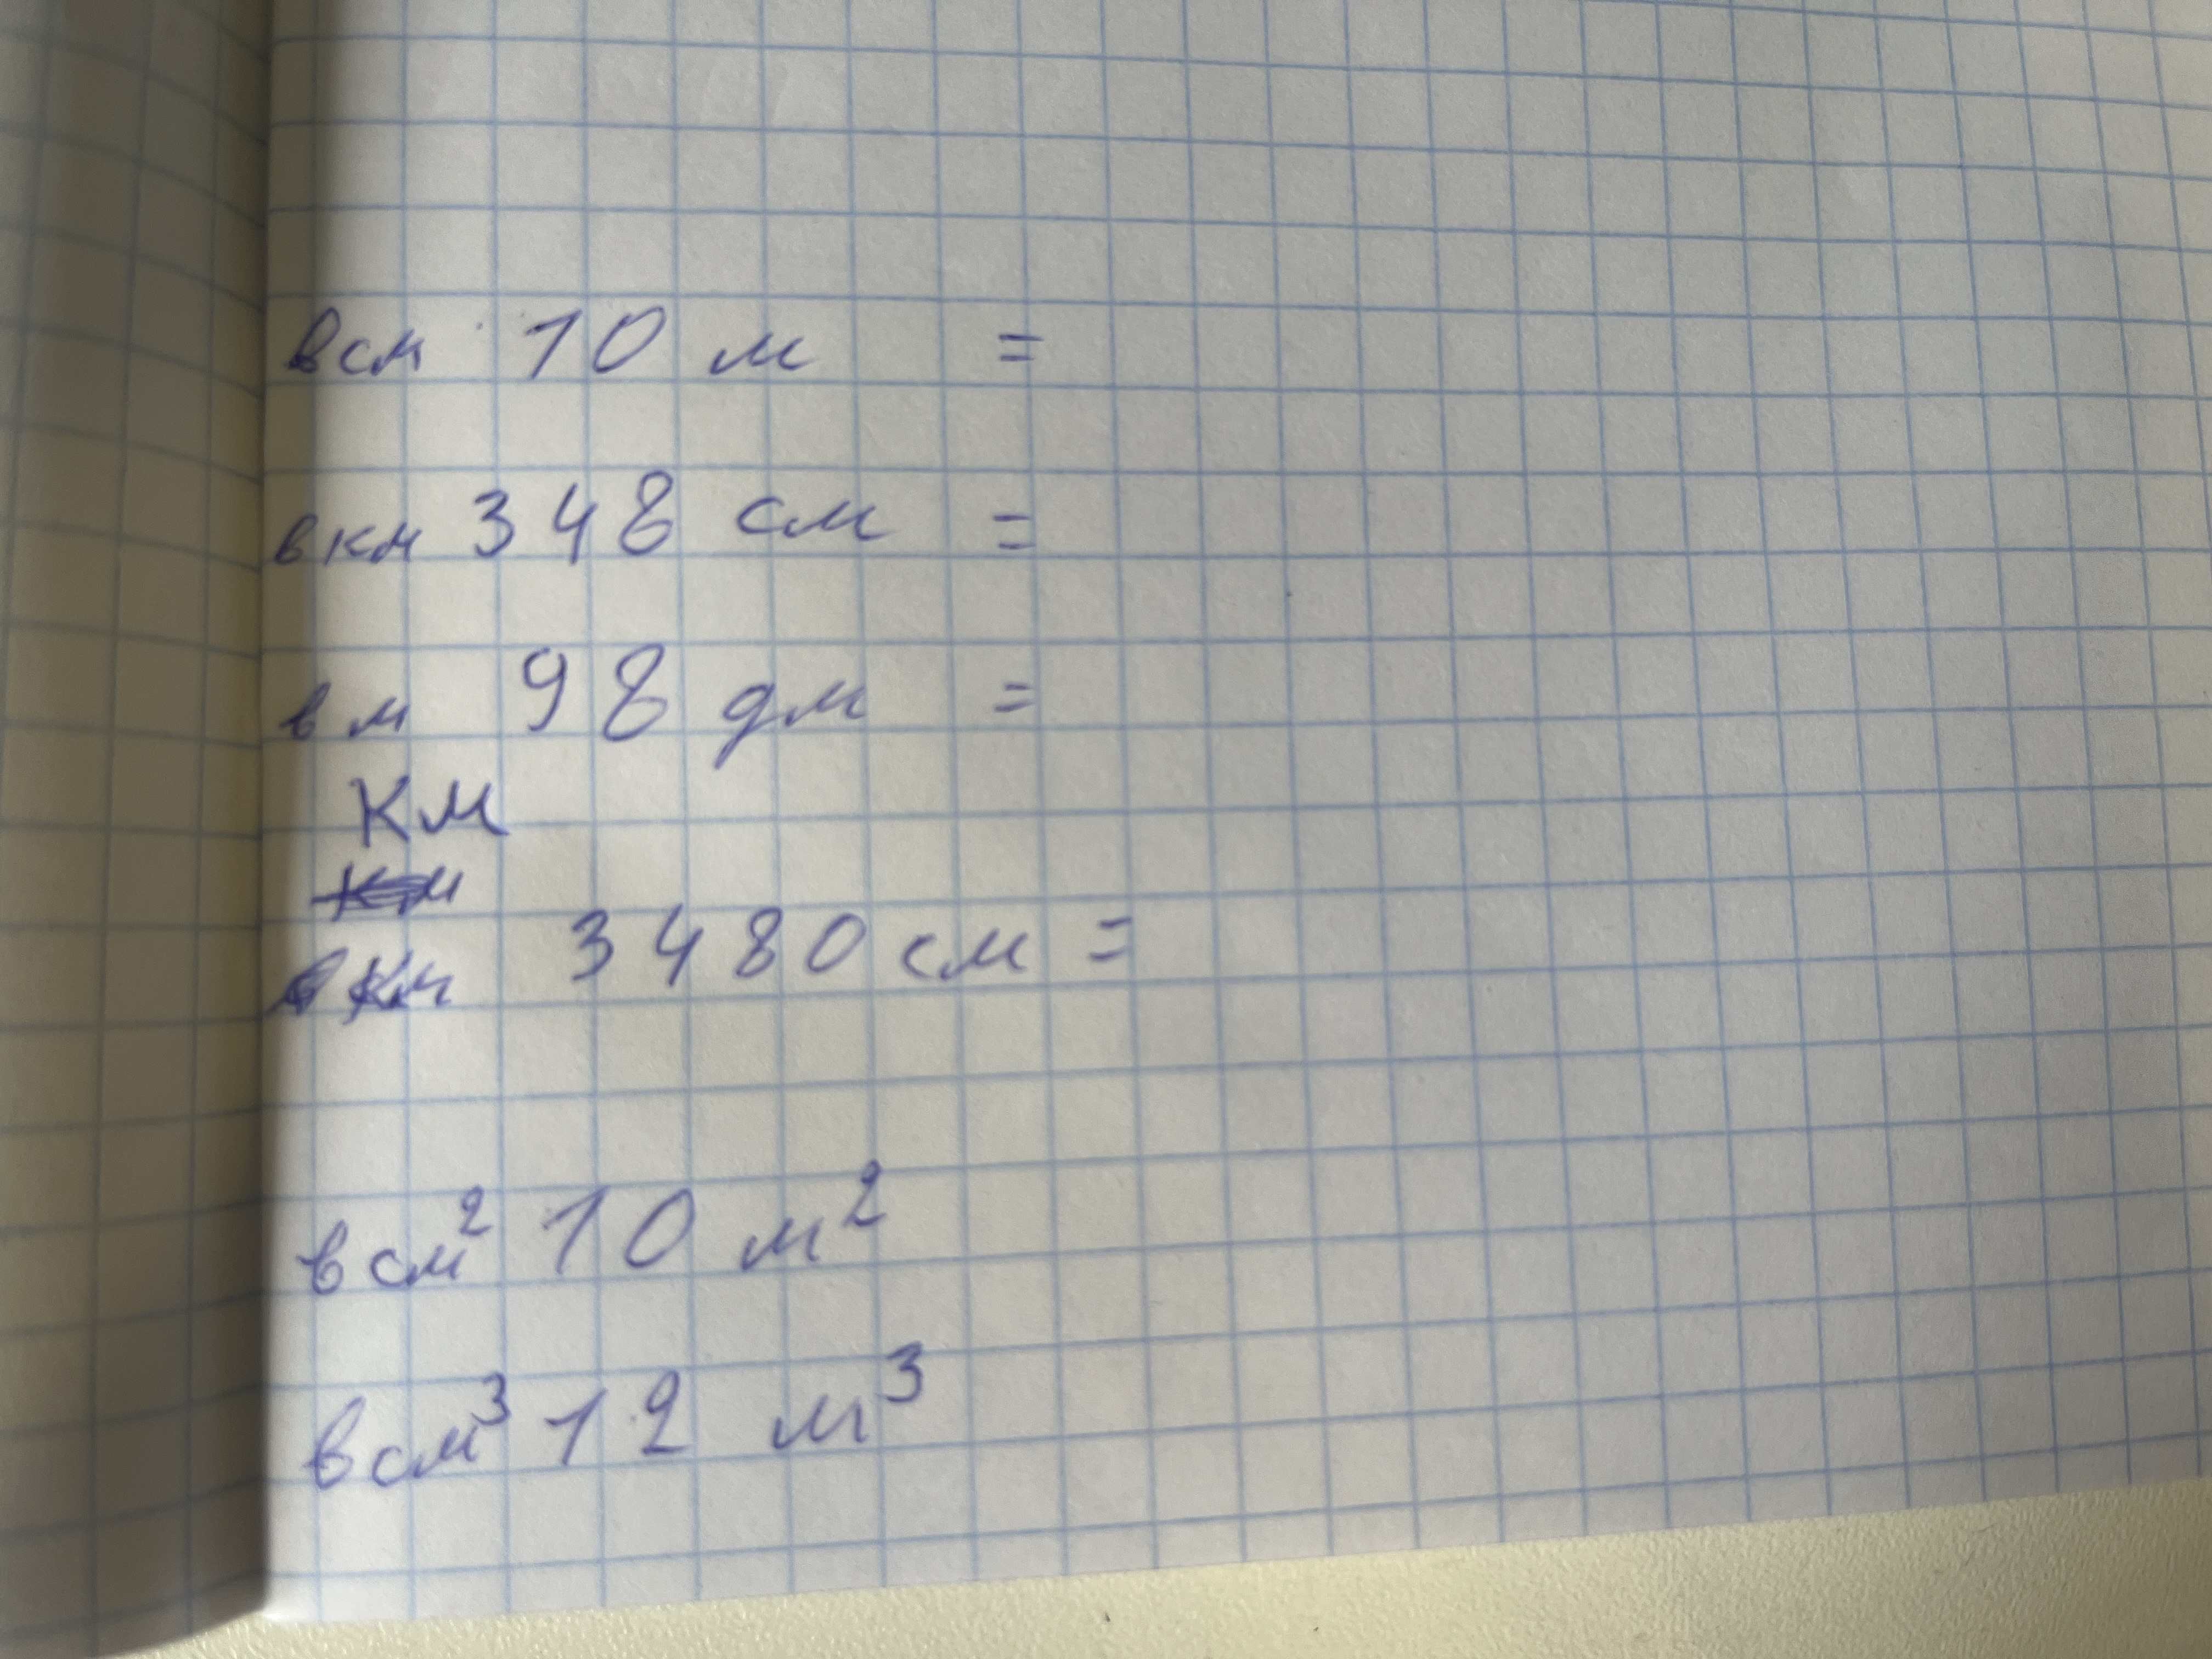 в см 10 м =
в км 348 см =
в м 98 дм =
км
км
в км 3480 см =
в см² 10 м²
в см³ 12 м³